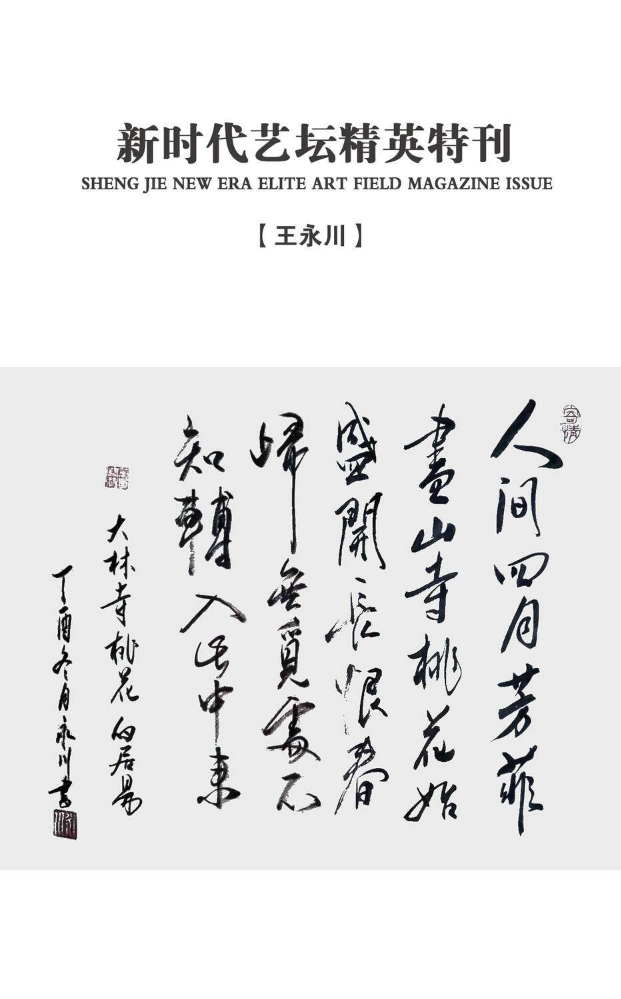 新时代艺坛精英特刊
SHENG JIE NEW ERA ELITE ART FIELD MAGAZINE ISSUE
【王永川】
人间四月芳菲
盡山寺桃花始
盛開長恨春
歸無覓處不
知轉入此中来
大林寺桃花白居易
丁酉冬月永川書